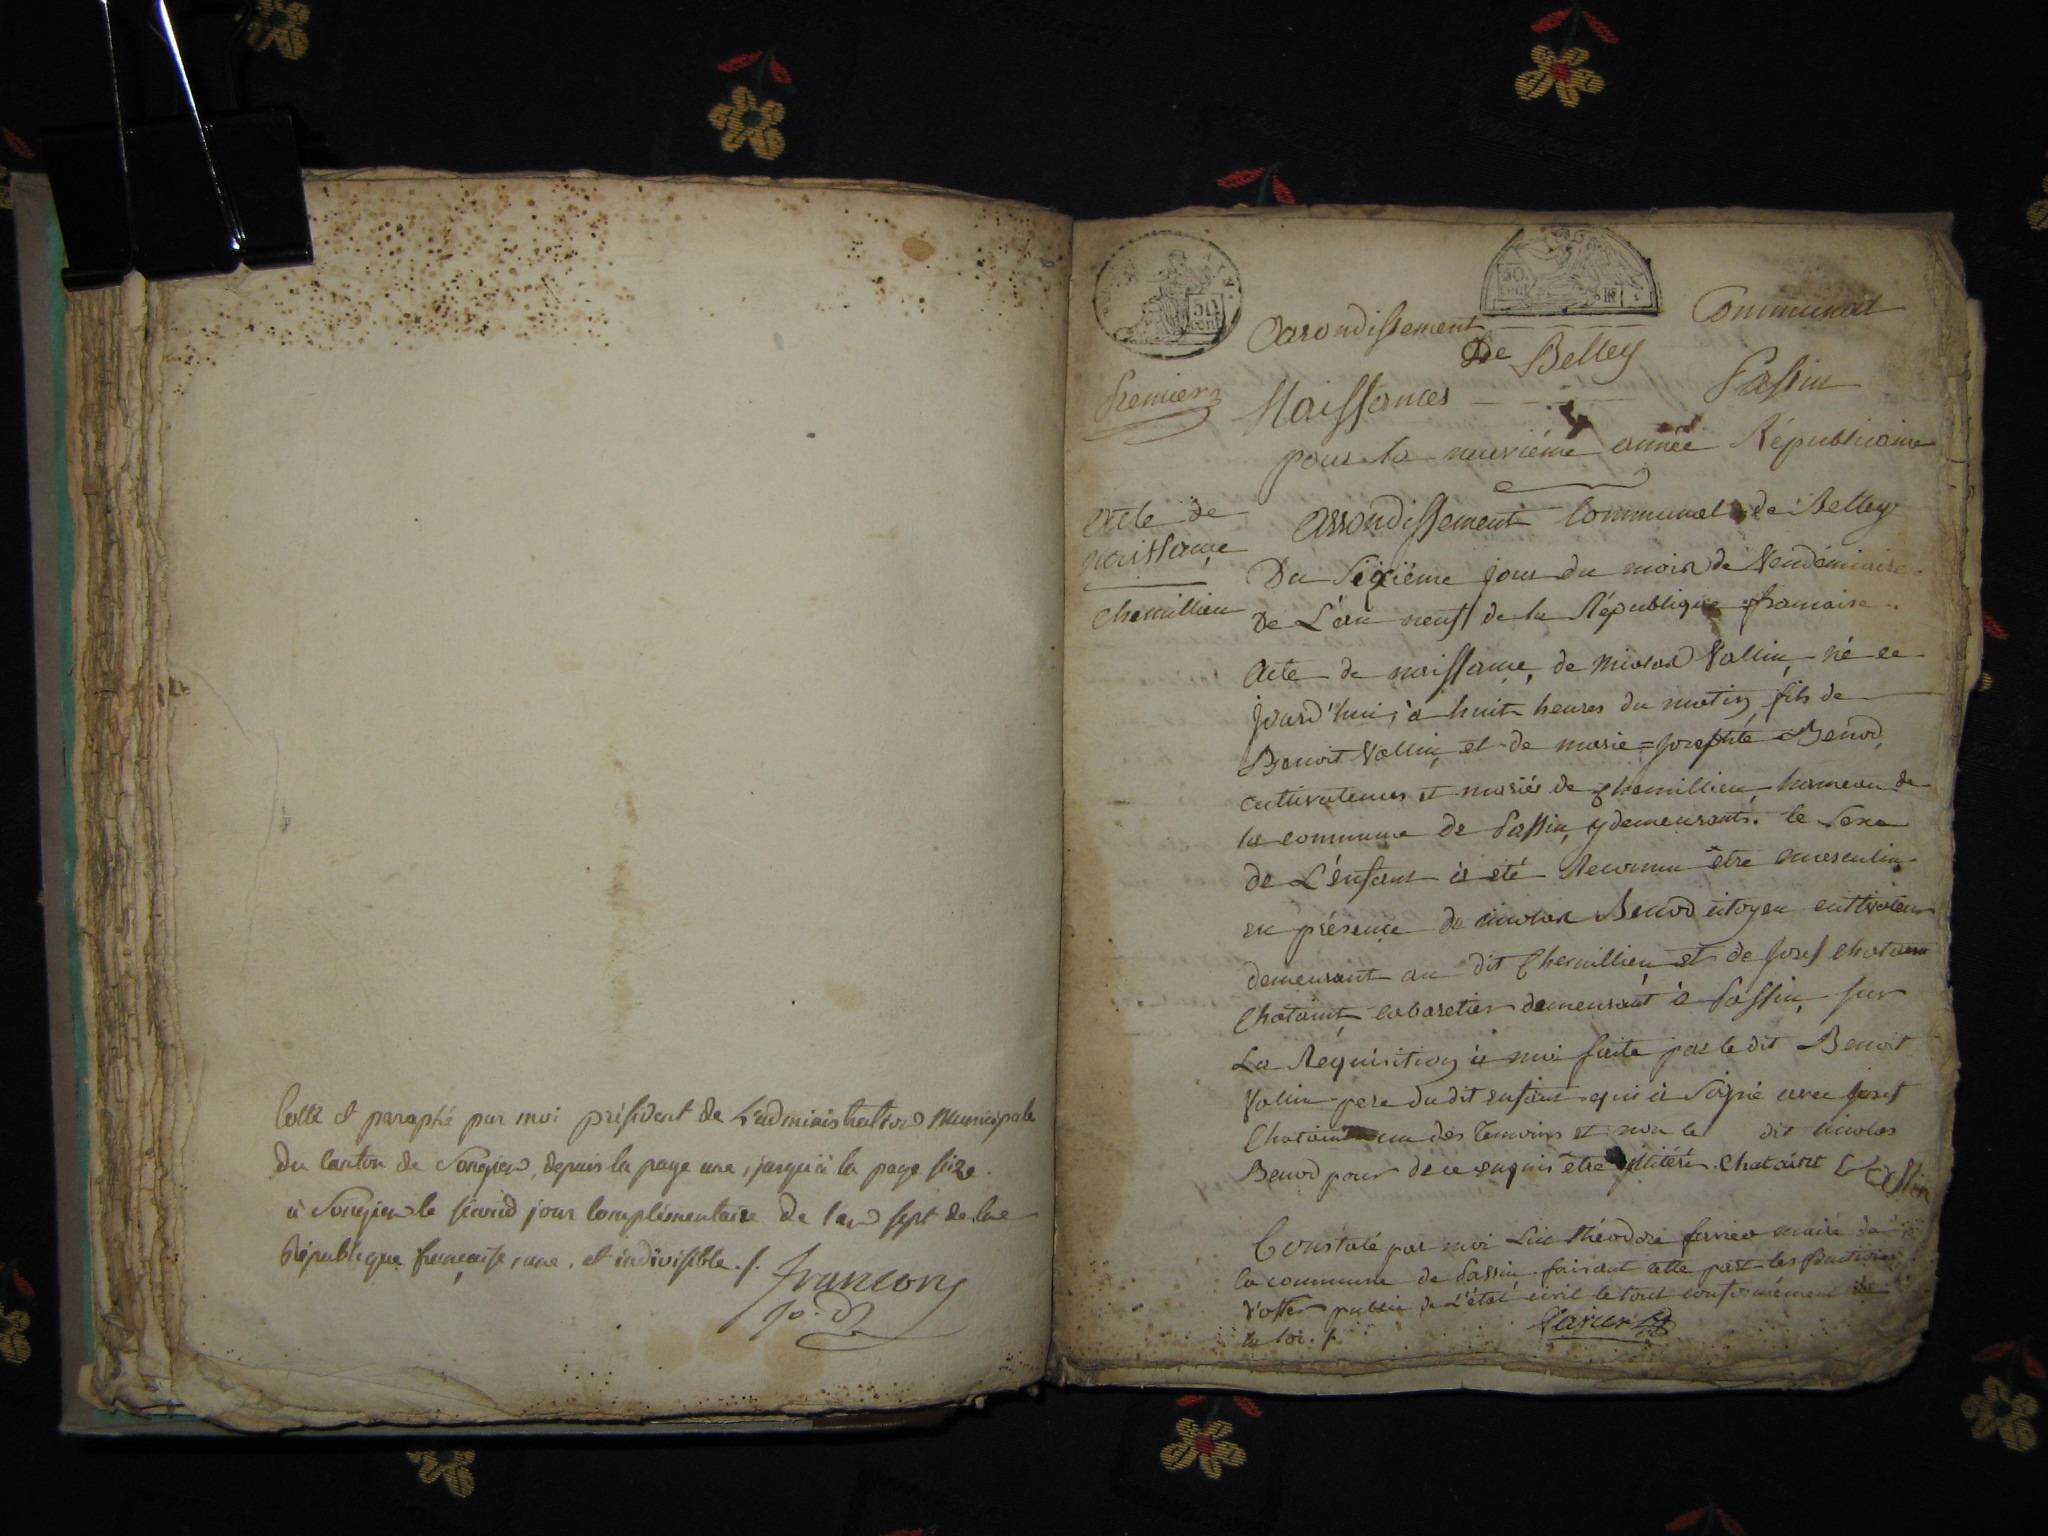 Cotté et paraphé par moi président de L'administration Municipale
du Canton de Songieu, depuis la page une, jusqu'à la page seize.
à Songieu le second jour Complémentaire de l'an sept de la
République française, une, et indivisible./.
françon
p.dt
50
50
Arondissement Communal
De Belley
Premier
Naissances Passin
pour la neuvième année Républicaine
Acte de
naissance
Chemillieu
Arrondissement Communal de Belley
Du Sixième jour du mois de Vendémiaire
De L'an neuf de la République franaise.
Acte de naissance, de Nicolas Vallin, né ce
jourd'hui, à huit heures du matin, fils de
Benoit Vallin, et de marie=Josephte Benod,
cultivateurs et mariés de Chemillieu, hameau de
la commune de Passin, y demeurants. le Sexe
de L'énfant à été Reconnu être masculin
en présence de nicolas Benod citoyen cultivateur
demeurant au dit Chemillieu, et de Josef
Chatains, cabaretier demeurant à Passin, sur
La Réquisition à moi faite par le dit Benoit
Vallin pere du dit enfant qui à Signé avec Josef
un des temoins et non le dit nicolas
Benod pour de ce enquis être illitéré.
Constaté par moi théodore maire de
la commune de Passin faisant cette part les fonctions
d'offer public de L'état civil le tout conformément
la loi./.